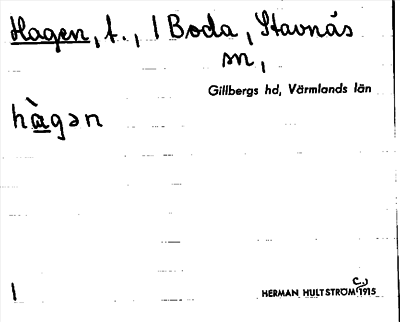 Hagen, t., 1 Boda, Stavnäs
sn,
Gillbergs hd, Värmlands län
hàgən
1
HERMAN HULTSTRÖM c. 1915